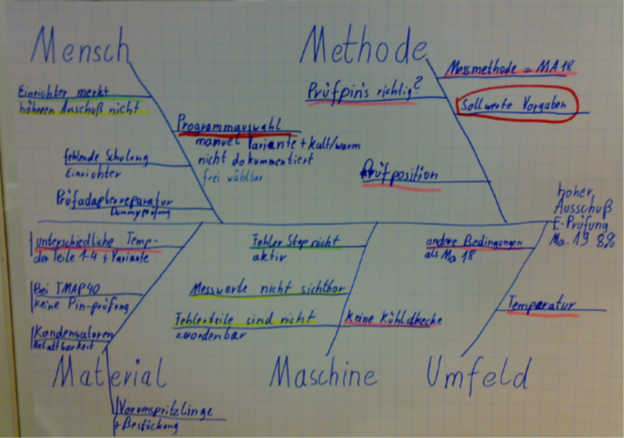 Mensch
Einrichter merkt
höheren Ausschuß nicht
Programmauswahl
manuel Variante + kalt/warm
nicht dokumentiert
frei wählbar
fehlende Schulung
Einrichter
Prüfadapterreparatur
Dummyprüfung
Methode
Messmethode = MA 18
Prüfpin's richtig?
Sollwerte Vorgaben
Prüfposition
hoher
Ausschuß
E-Prüfung
Ma. 19 8%
unterschiedliche Temp-
der Teile 1-4 + Variante
Bei TMAP40
keine Pin-prüfung
Kondensatoren
Material
Vorumspritzlinge
+ Bestückung
Fehler Stop nicht
aktiv
Messwerte nicht sichtbar
Fehlerteile sind nicht
zuordenbar
keine Kühlstrecke
Maschine
andere Bedingungen
als Ma 18
Temperatur
Umfeld